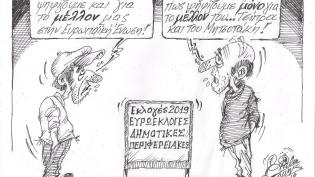 ψηφίζουμε και για
το μέλλον μας
στην Ευρωπαϊκή Ένωση!
πως ψηφίζουμε μόνο για
το μέλλον του... Τσίπρα
και του Μητσοτάκη!
Εκλογές 2019
ΕΥΡΩΕΚΛΟΓΕΣ
ΔΗΜΟΤΙΚΕΣ
ΠΕΡΙΦΕΡΕΙΑΚΕΣ